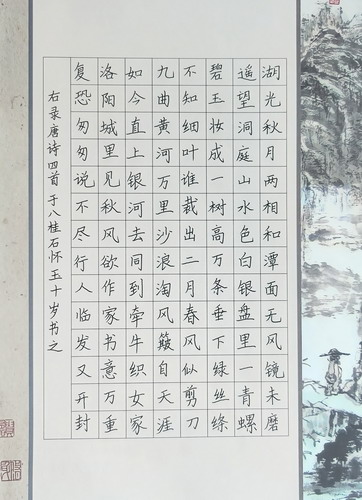 湖光秋月两相和潭面无风镜未磨
遥望洞庭山水色白银盘里一青螺
碧玉妆成一树高万条垂下绿丝绦
不知细叶谁裁出二月春风似剪刀
九曲黄河万里沙浪淘风簸自天涯
如今直上银河去同到牵牛织女家
洛阳城里见秋风欲作家书意万重
复恐匆匆说不尽行人临发又开封
右录唐诗四首于八桂石怀玉十岁书之